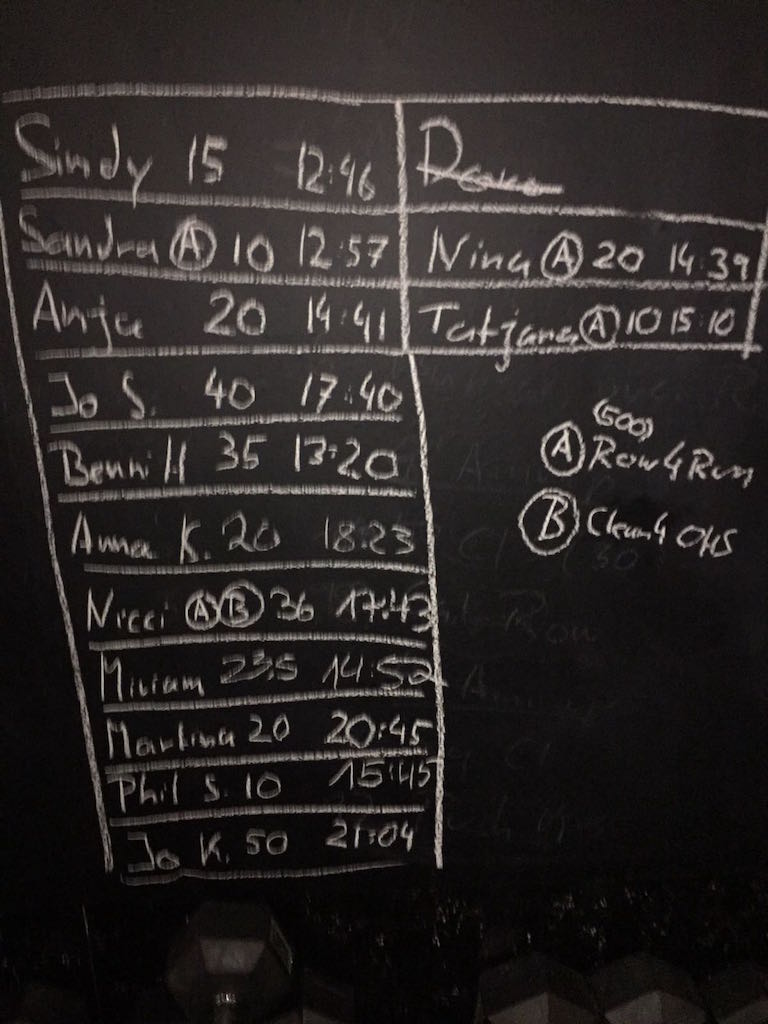 Sindy 15 12:46
Sandra (A) 10 12:57
Anja 20 14:41
Jo S. 40 17:40
Benni H 35 13:20
Anna K. 20 18:23
Nicci (A) (B) 36 17:43
Miriam 23,5 14:52
Martina 20 20:45
Phil S. 10 15:45
Jo K. 50 21:04
Nina (A) 20 14:39
Tatjana (A) 10 15:10
(500)
(A) Row 4 Run
(B) Clean 4 OHS